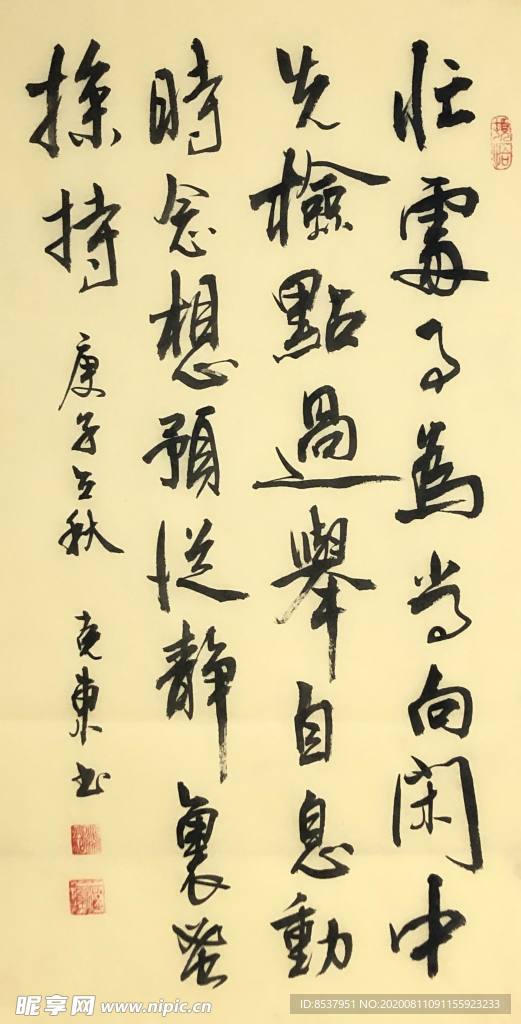 忙處事為常向閑中
先檢點過舉自息動
時念想預從静裏
操持
庚子立秋 克東書
昵享网 www.nipic.cn
ID:8537951 NO:20200811091155923233